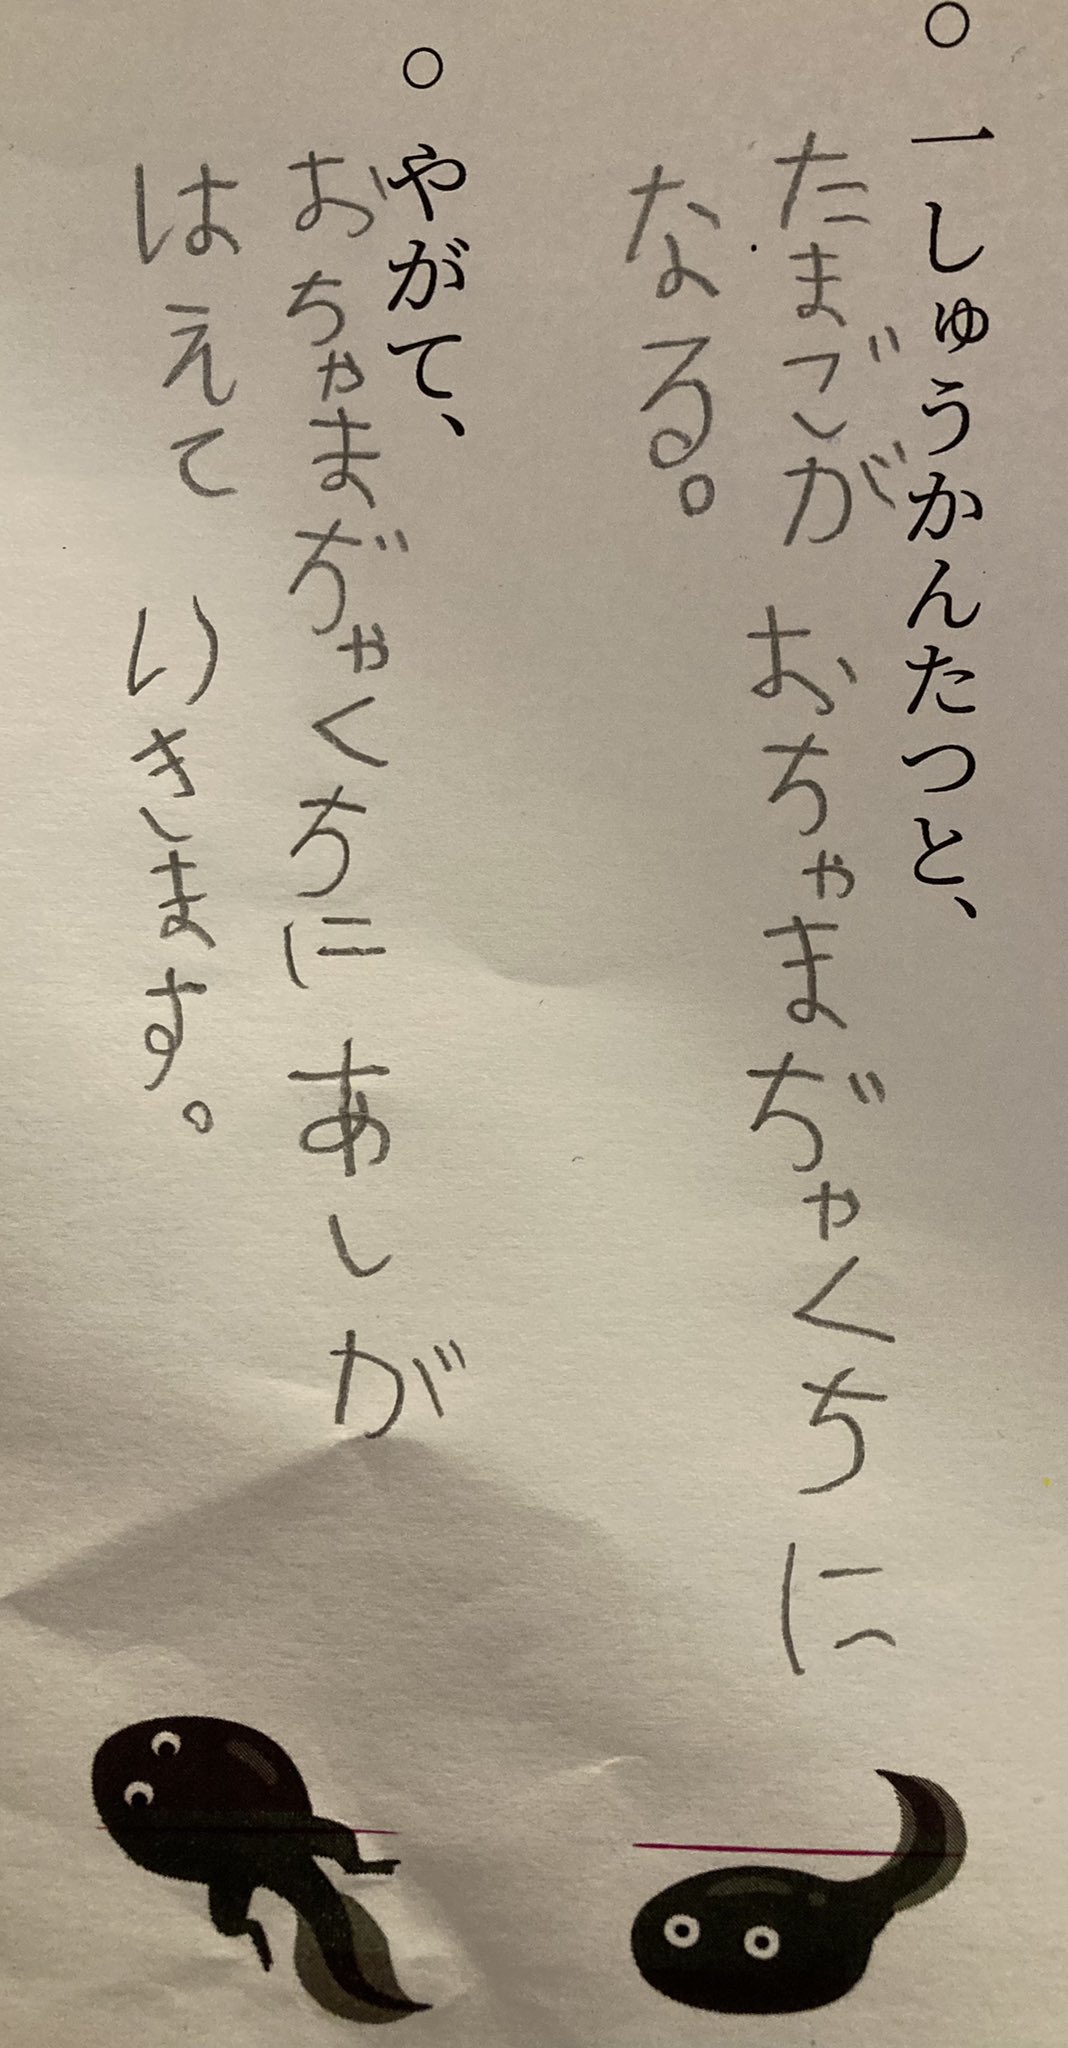 ○ 一しゅうかんたつと、
たまごが おちゃまぢゃくちに
なる。
○ やがて、
おちゃまぢゃくちに あしが
はえて いきます。